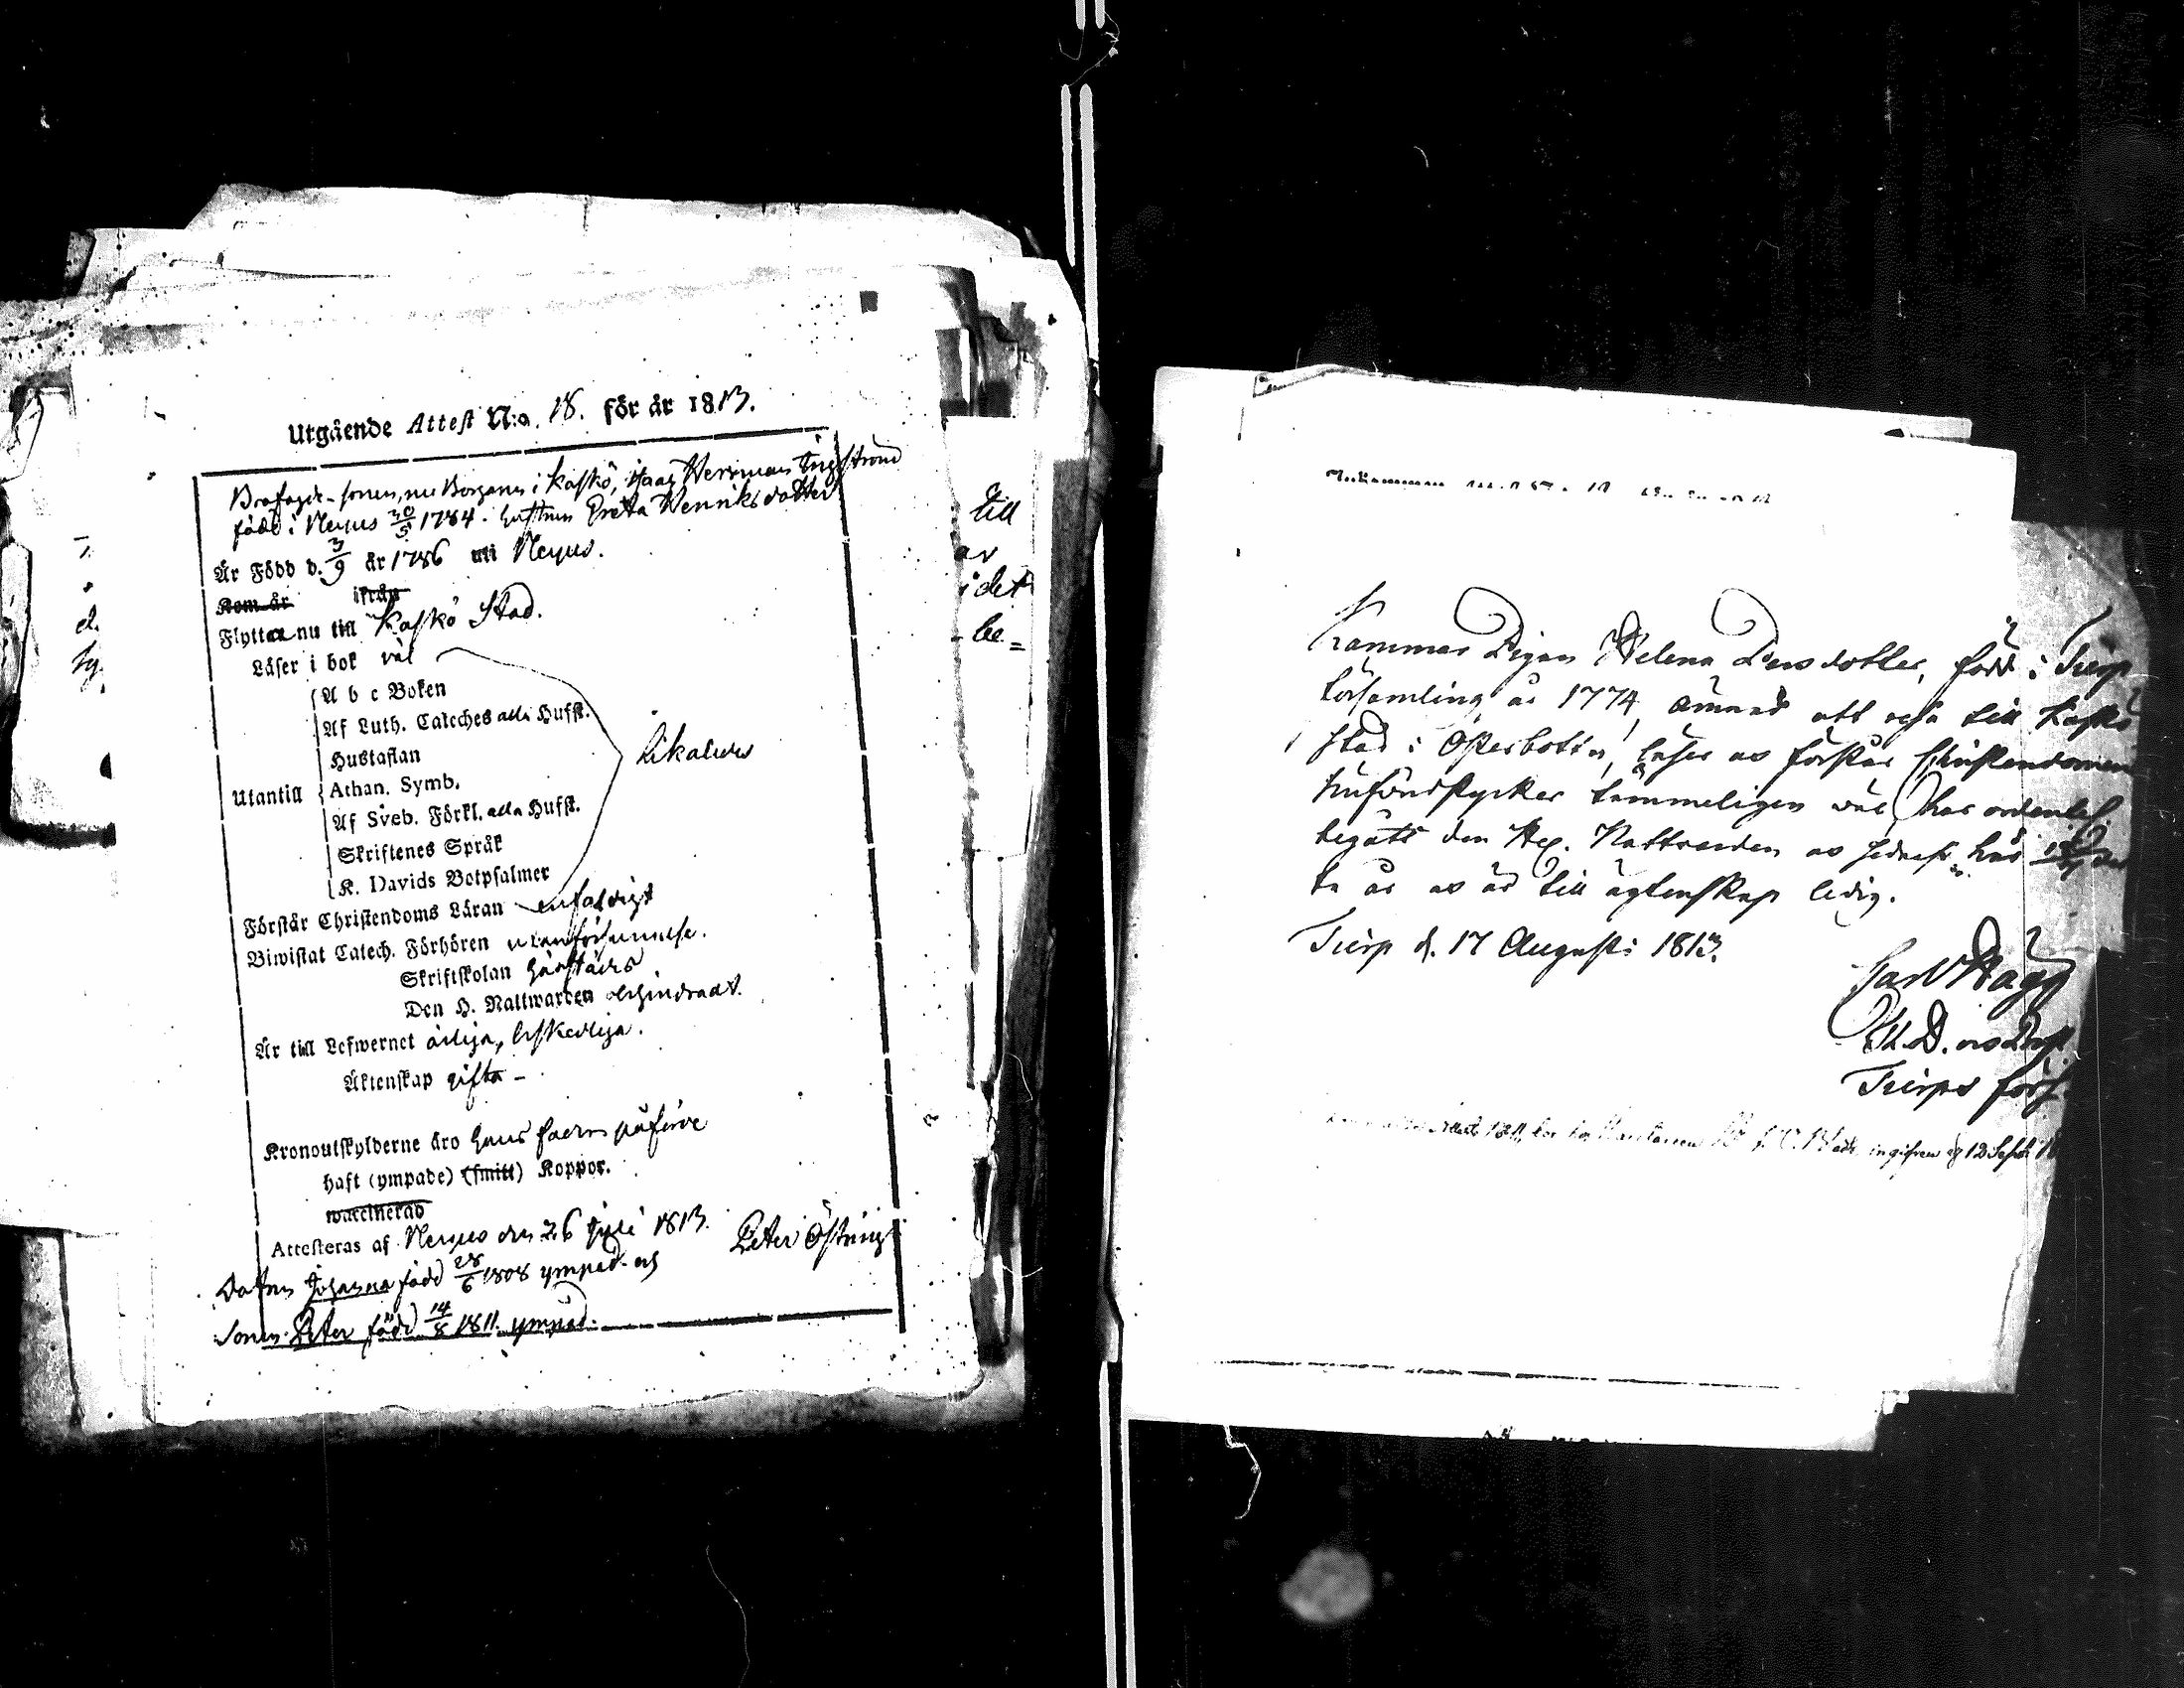 Utgående Attest N:o 18. för år 1813.
Brofogde-sonen, nu Borgaren i Kaskö, Isaac Herrman Engström
född i Nerpes 30/5 1784. hustrun Greta Henriksdotter
Är Född d. 3/9 år 1786 uti Nerpes.
Kom år ifrån
Flyttar nu till Kaskö Stad.
Läser i bok väl
A b c Boken
Af Luth. Cateches alla Hufst.
Hustaflan
Utantill Athan. Symb. likaledes
Af Sveb. Förkl. alla Hufst.
Skriftenes Språk
K. Davids Botpsalmer
Förstår Christendoms Läran enfaldigt
Biwistat Catech. Förhören utan försummelse.
Skriftskolan härstädes
Den H. Nattwarden ohindradt.
Är till Lefwernet ärliga, beskedliga.
Äktenskap gifta –
Kronoutskylderne äro hans faders påförde
haft (ympade) (smitt) Koppor.
waccinerad
Attesteras af Nerpes den 26 Juli 1813. Peter Östring
Dottren Johanna född 28/6 1808 ympad och
Sonen Peter född 14/8 1811. ympad.
till
av
i det
be=
Kammar Pigan Helena Persdotter, född i Tierp
församling år 1774, ämnar att resa till Kaskö
stad i Österbotten, läser och förstår Christendomens
hufvudstycker tämmeligen väl, har ordentl.
begått den Hel. Nattvarden och sednast här
år och är till ägtenskap ledig.
Tierp d. 17 Augusti 1813.
Carl Hagg
Th. D. och Prost
Tierps förs.
ingifven d 12 Sept